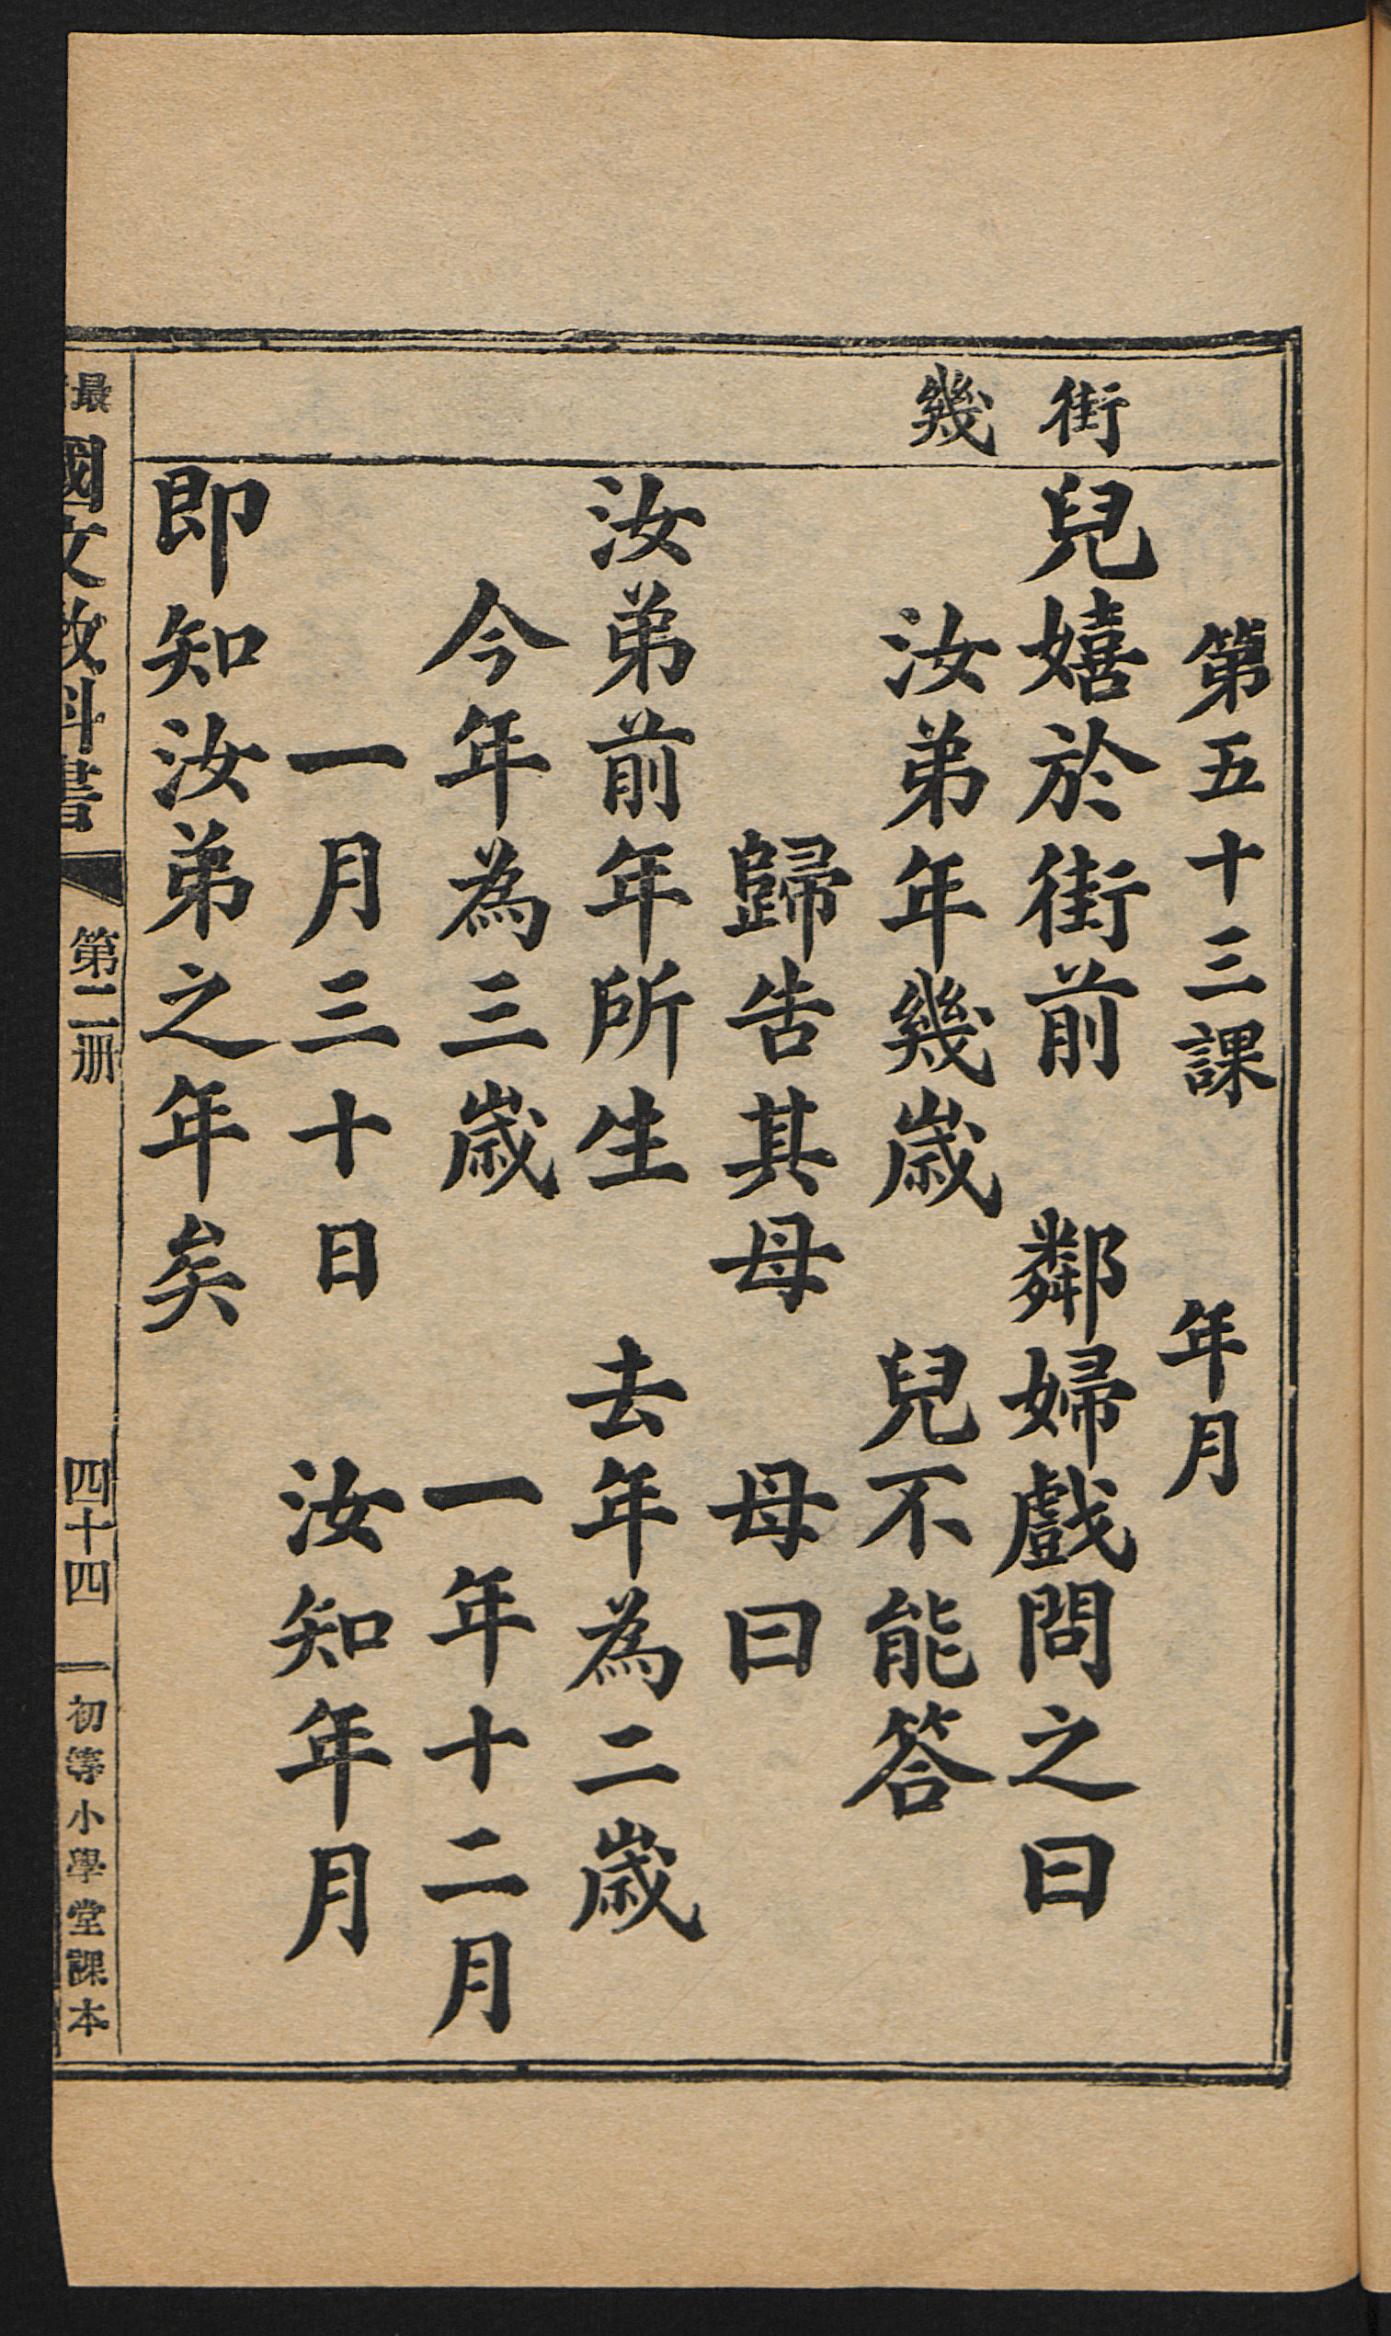 街
幾
第五十三課　年月
兒嬉於街前　鄰婦戲問之曰
汝弟年幾歲　兒不能答
歸告其母　母曰
汝弟前年所生　去年為二歲
今年為三歲　一年十二月
一月三十日　汝知年月
即知汝弟之年矣
最 國文教科書　第二册　四十四　初等小學堂課本